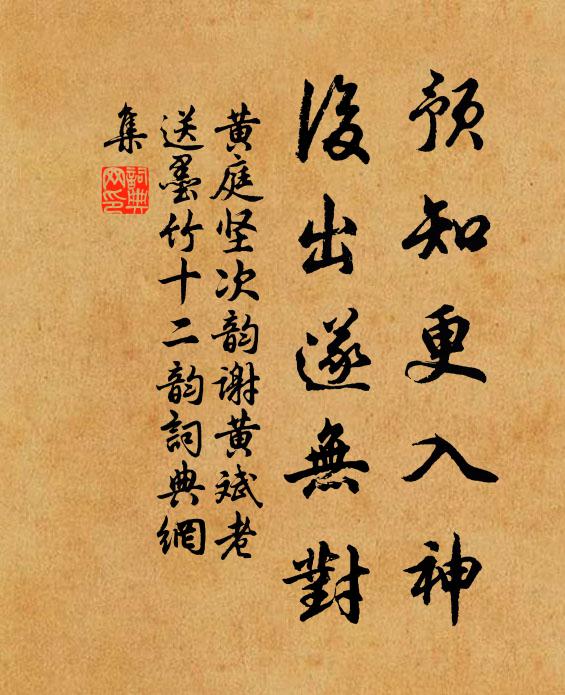 預知更入神
後出遂無對
黄庭坚次韵谢黄斌老
送墨竹十二韵詞典網
集
詞典網印